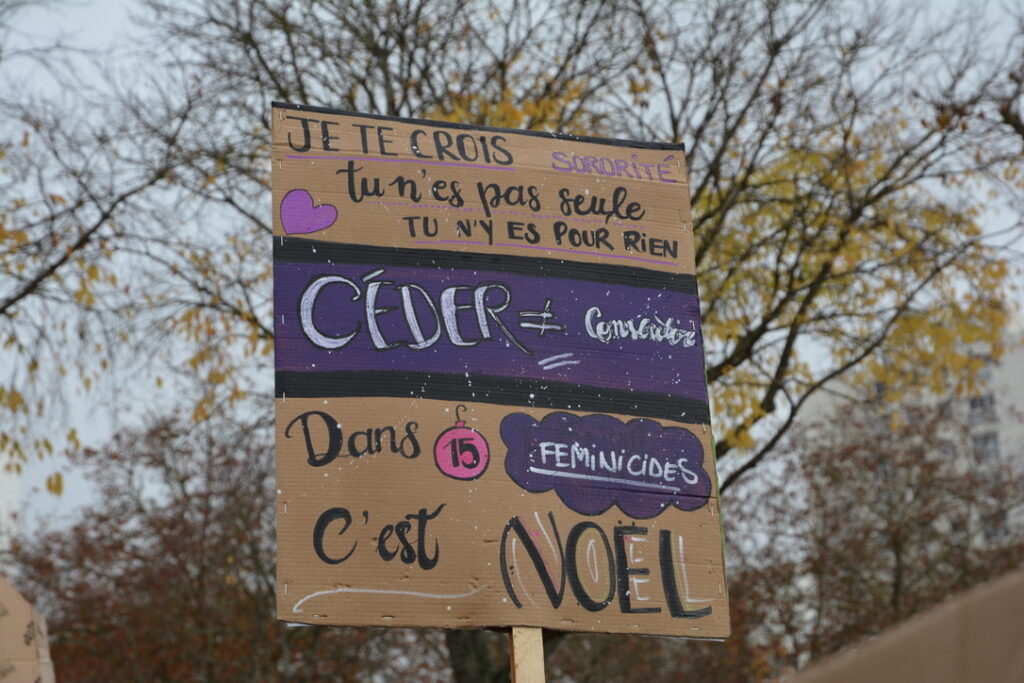 JE TE CROIS
SORORITÉ
tu n'es pas seule
TU N'Y ES POUR RIEN
CÉDER ≠ Consentir
Dans 15 FEMINICIDES
C'est NOËL